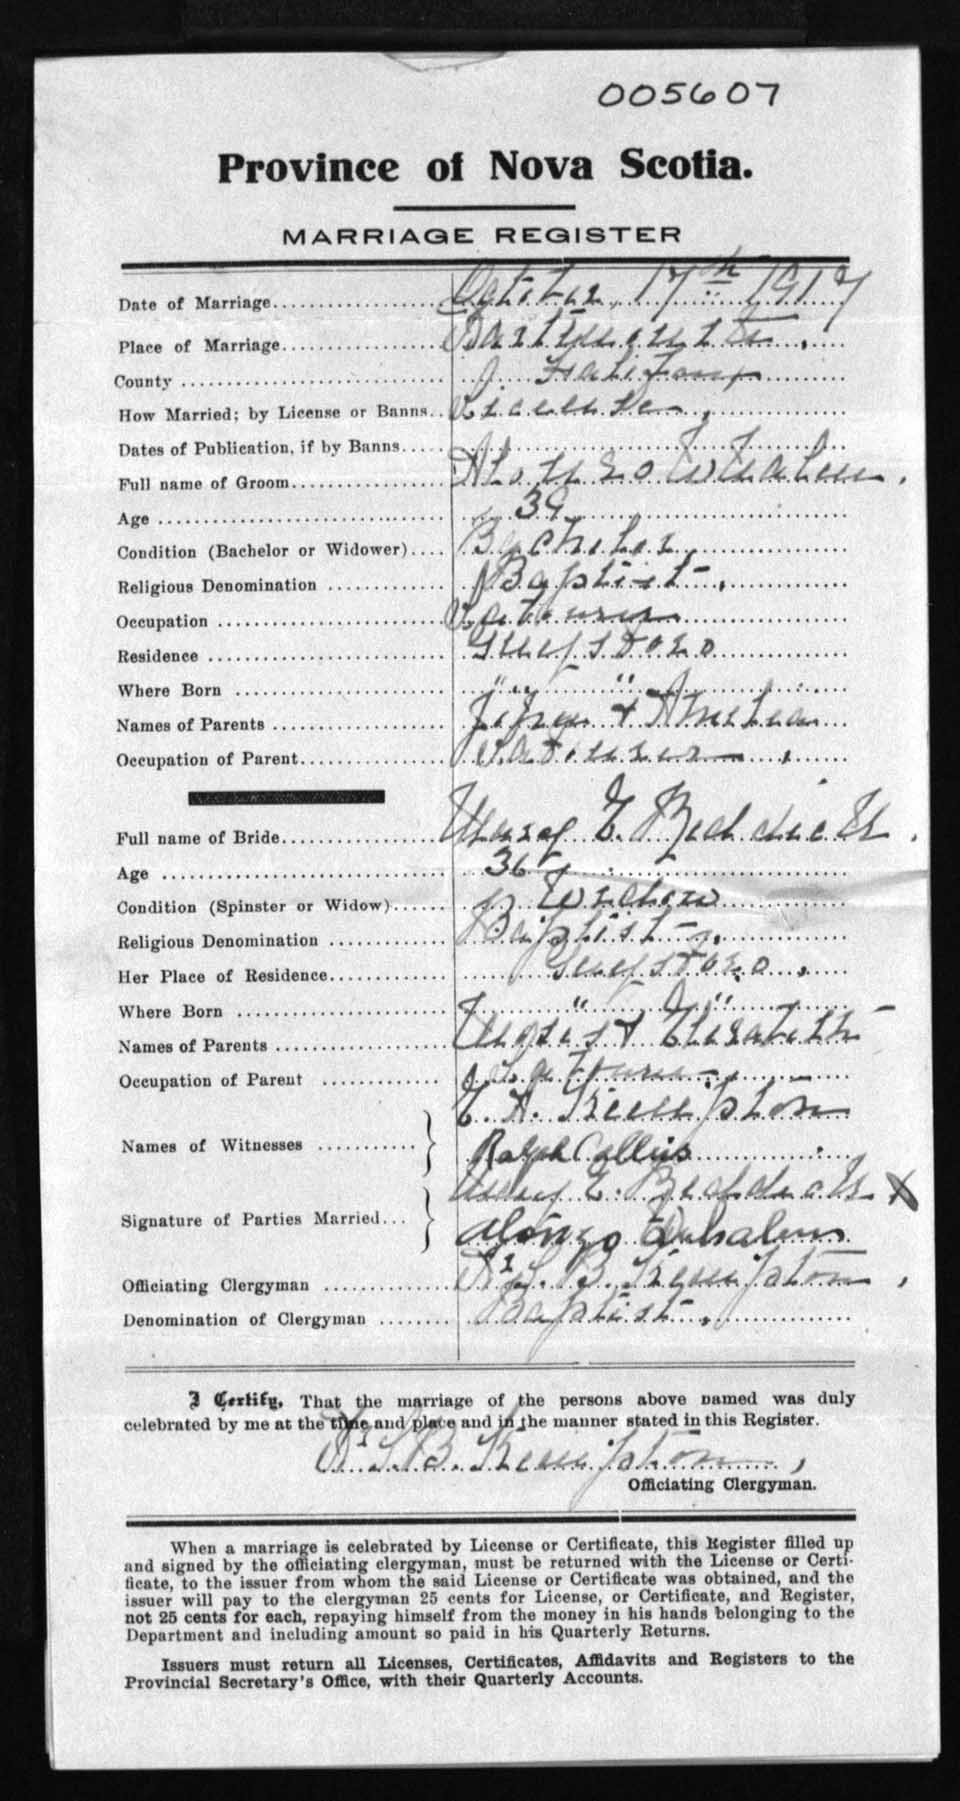 005607
Province of Nova Scotia.
MARRIAGE REGISTER
Date of Marriage October 17th 1917
Place of Marriage Dartmouth.
County Halifax
How Married; by License or Banns License.
Dates of Publication, if by Banns
Full name of Groom Alonzo Whalen.
Age 39
Condition (Bachelor or Widower) Bachelor
Religious Denomination Baptist.
Occupation Labourer
Residence Guysboro
Where Born " "
Names of Parents & Amelia
Occupation of Parent Labourer.
Full name of Bride Mary E. Reddick.
Age 36
Condition (Spinster or Widow) Widow
Religious Denomination Baptist.
Her Place of Residence Guysboro.
Where Born " "
Names of Parents & Elizabeth
Occupation of Parent Labourer
Names of Witnesses E. A. Kempton
Ralph Collins
Signature of Parties Married Mary E. Reddick X
Alonzo Whalen
Officiating Clergyman S. B. Kempton.
Denomination of Clergyman Baptist.
I Certify, That the marriage of the persons above named was duly
celebrated by me at the time and place and in the manner stated in this Register.
S. B. Kempton,
Officiating Clergyman.
When a marriage is celebrated by License or Certificate, this Register filled up
and signed by the officiating clergyman, must be returned with the License or Certi-
ficate, to the issuer from whom the said License or Certificate was obtained, and the
issuer will pay to the clergyman 25 cents for License, or Certificate, and Register,
not 25 cents for each, repaying himself from the money in his hands belonging to the
Department and including amount so paid in his Quarterly Returns.
Issuers must return all Licenses, Certificates, Affidavits and Registers to the
Provincial Secretary's Office, with their Quarterly Accounts.